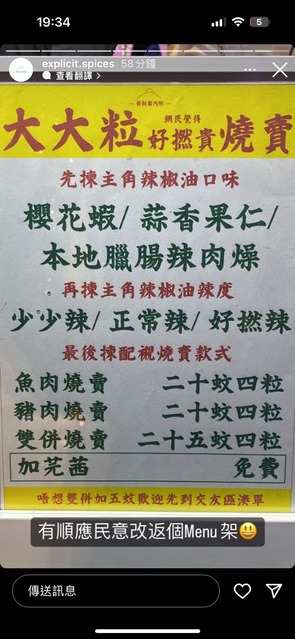 19:34
5
explicit.spices 58分鐘
查看翻譯 >
香料案內所
大大粒 網民覺得 好撚貴 燒賣
先揀主角辣椒油口味
櫻花蝦/ 蒜香果仁/
本地臘腸辣肉燥
再揀主角辣椒油辣度
少少辣/ 正常辣/ 好撚辣
最後揀配襯燒賣款式
魚肉燒賣 二十蚊四粒
豬肉燒賣 二十蚊四粒
雙併燒賣 二十五蚊四粒
加芫茜 免費
唔想雙併加五蚊歡迎先到交友區湊單
有順應民意改返個Menu架😃
傳送訊息